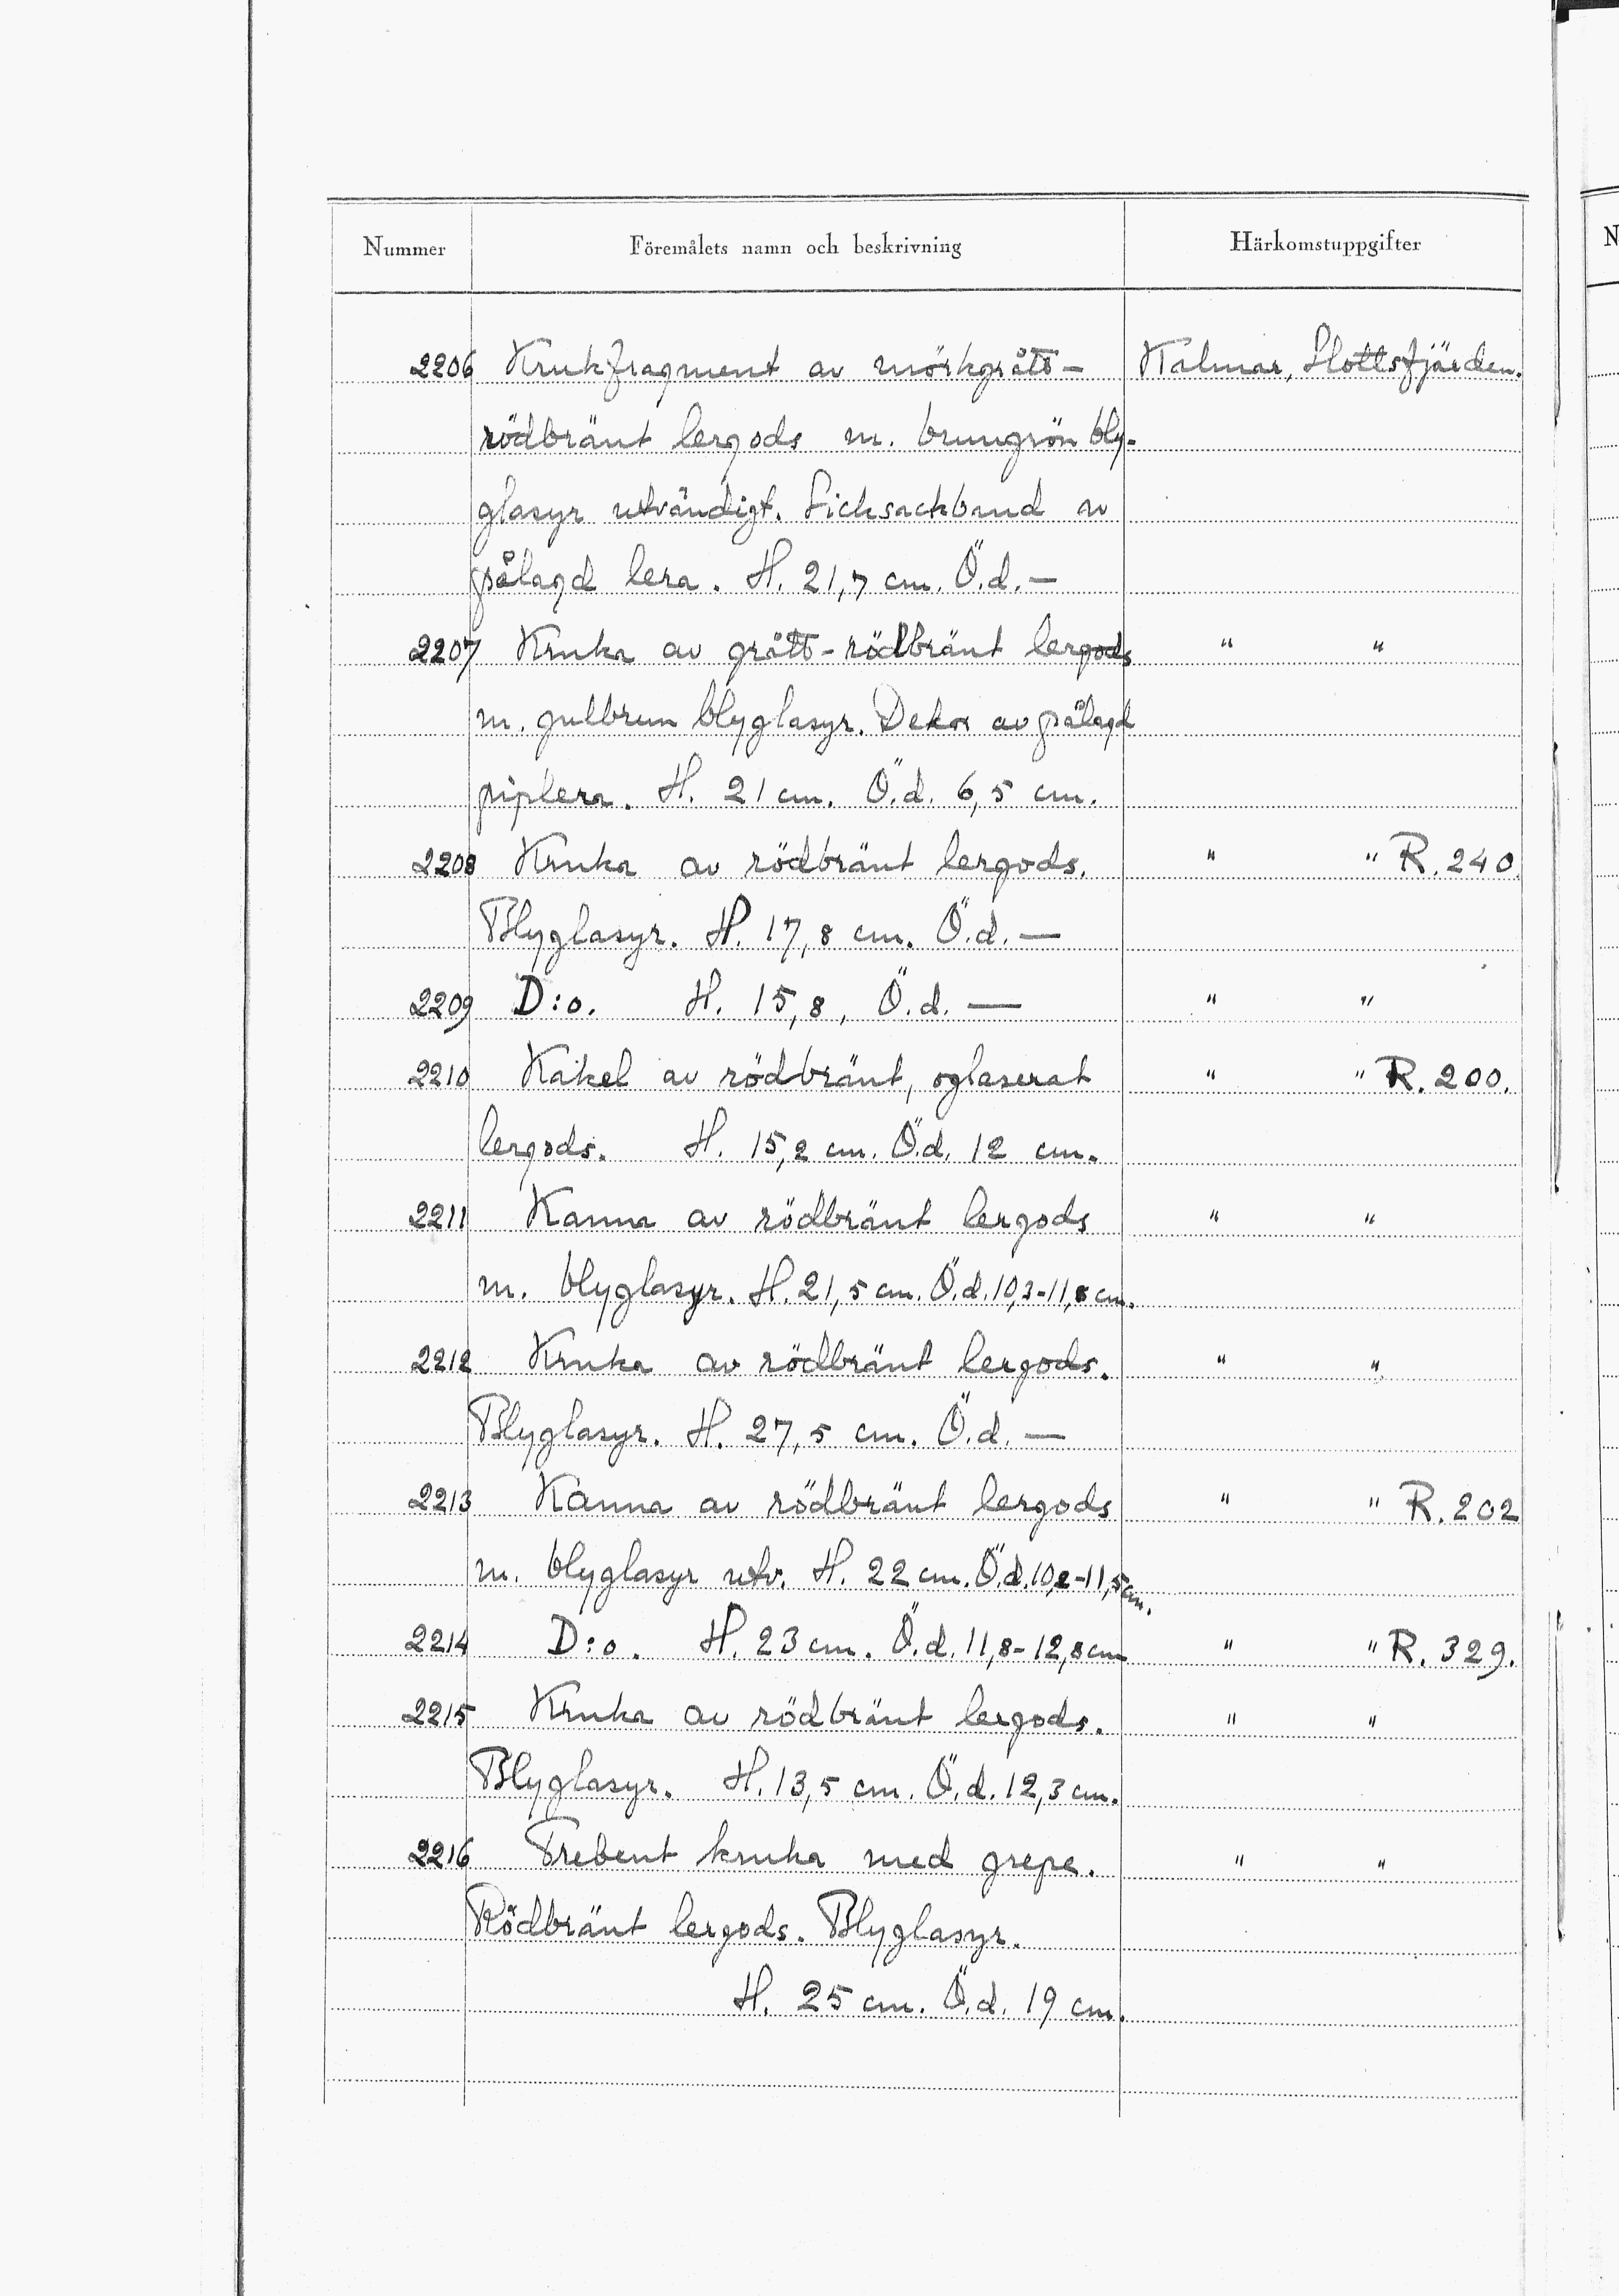 Nummer Föremålets namn och beskrivning Härkomstuppgifter N
2206 Krukfragment av mörkgrått- Kalmar, Slottsfjärden.
rödbränt lergods m. brungrön bly-
glasyr utvändigt. Sicksackband av
pålagd lera. H. 21,7 cm. Ö.d. —
2207 Kruka av grått-rödbränt lergods " "
m. gulbrun blyglasyr. Dekor av pålagd
piplera. H. 21 cm. Ö.d. 6,5 cm.
2208 Kruka av rödbränt lergods. " " R. 240.
Blyglasyr. H. 17,8 cm. Ö.d. —
2209 D:o. H. 15,8, Ö.d. — " "
2210 Kakel av rödbränt, oglaserat " " R. 200.
lergods. H. 15,2 cm. Ö.d. 12 cm.
2211 Kanna av rödbränt lergods " "
m. blyglasyr. H. 21,5 cm. Ö.d. 10,3-11,8 cm.
2212 Kruka av rödbränt lergods. " "
Blyglasyr. H. 27,5 cm. Ö.d. —
2213 Kanna av rödbränt lergods " " R. 202
m. blyglasyr utv. H. 22 cm. Ö.d. 10,2-11,5 cm.
2214 D:o. H. 23 cm. Ö.d. 11,8-12,8 cm " " R. 329.
2215 Kruka av rödbränt lergods. " "
Blyglasyr. H. 13,5 cm. Ö.d. 12,3 cm.
2216 Trebent kruka med grepe. " "
Rödbränt lergods. Blyglasyr.
H. 25 cm. Ö.d. 19 cm.